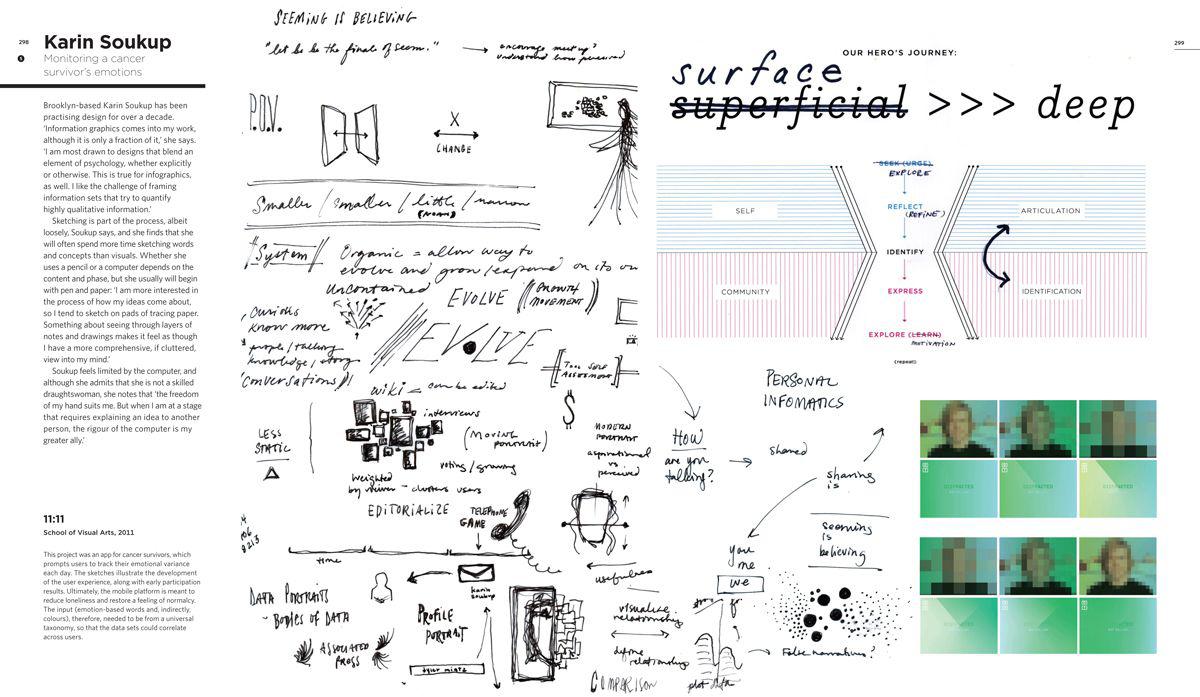 298
Karin Soukup
Monitoring a cancer
survivor's emotions
Brooklyn-based Karin Soukup has been
practising design for over a decade.
'Information graphics comes into my work,
although it is only a fraction of it,' she says.
'I am most drawn to designs that blend an
element of psychology, whether explicitly
or otherwise. This is true for infographics,
as well. I like the challenge of framing
information sets that try to quantify
highly qualitative information.'
Sketching is part of the process, albeit
loosely, Soukup says, and she finds that she
will often spend more time sketching words
and concepts than visuals. Whether she
uses a pencil or a computer depends on the
content and phase, but she usually will begin
with pen and paper: 'I am more interested in
the process of how my ideas come about,
so I tend to sketch on pads of tracing paper.
Something about seeing through layers of
notes and drawings makes it feel as though
I have a more comprehensive, if cluttered,
view into my mind.'
Soukup feels limited by the computer, and
although she admits that she is not a skilled
draughtswoman, she notes that 'the freedom
of my hand suits me. But when I am at a stage
that requires explaining an idea to another
person, the rigour of the computer is my
greater ally.'
11:11
School of Visual Arts, 2011
This project was an app for cancer survivors, which
prompts users to track their emotional variance
each day. The sketches illustrate the development
of the user experience, along with early participation
results. Ultimately, the mobile platform is meant to
reduce loneliness and restore a feeling of normalcy.
The input (emotion-based words and, indirectly,
colours), therefore, needed to be from a universal
taxonomy, so that the data sets could correlate
across users.
SEEMING IS BELIEVING
"let be be the finale of seem."
encourage meet up?
understand how perceived
P.O.V.
X
CHANGE
Smaller / smaller / little / narrow
"System"
Organic = allow way to
evolve and grow/expand on its ow
Uncontained
EVOLVE
(GROWTH
MOVEMENT)
Curious
Know more
people/talking
knowledge/story
Conversations
EVOLVE
TOOL SELF
ASSESSMENT
wiki = can be edited
LESS
STATIC
interviews
(MOVING
PORTRAIT)
voting/growing
weighted
by viewer - clusters users
EDITORIALIZE
$
MODERN
PORTRAIT
aspirational
vs
perceived
TELEPHONE
GAME
time
usefulness
DATA PORTRAITS
- BODIES OF DATA
ASSOCIATED
PRESS
karin
soukup
PROFILE
PORTRAIT
visualize
relationship
define
relationship
COMPARISON
plot data
299
OUR HERO'S JOURNEY:
surface
superficial >>> deep
SEEK (URGE)
EXPLORE
SELF
REFLECT
(REFINE)
ARTICULATION
IDENTIFY
COMMUNITY
EXPRESS
IDENTIFICATION
EXPLORE (LEARN)
MOTIVATION
(repeat)
PERSONAL
INFOMATICS
How
are you
talking?
shared
sharing
is
seeming
is
believing
you
me
we
False narratives?